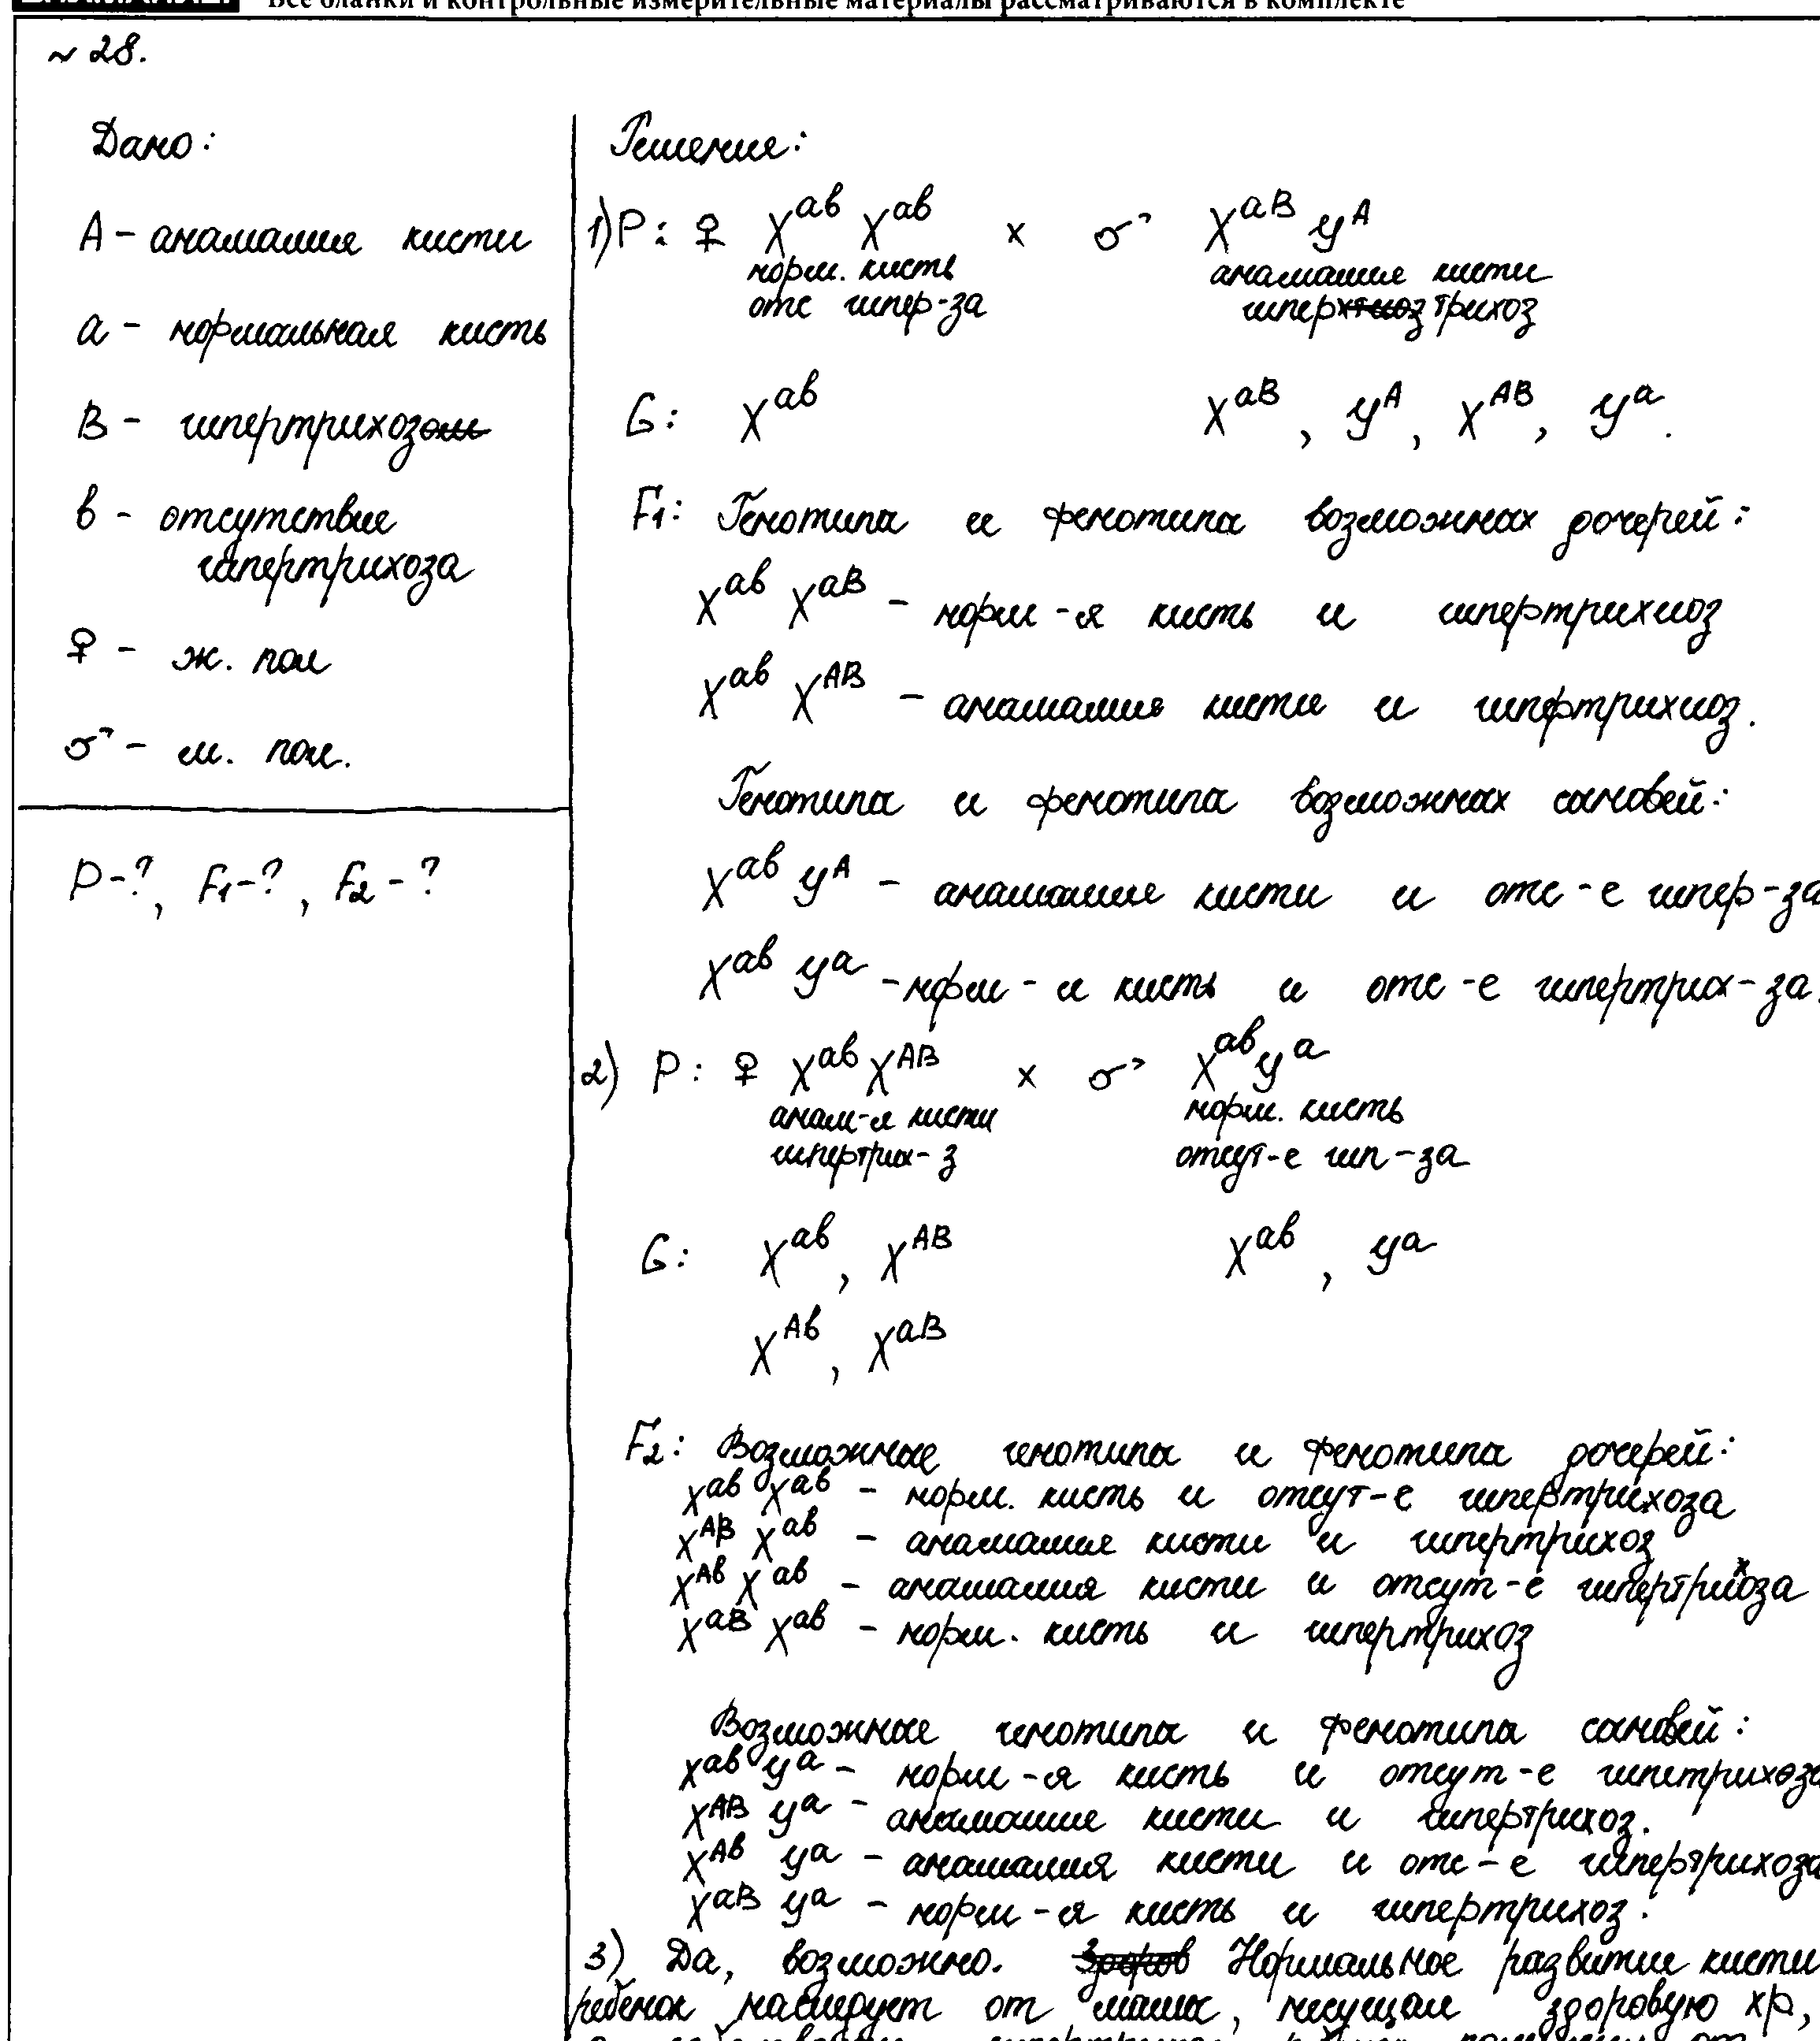 Все бланки и контрольные измерительные материалы рассматриваются в комплекте
~ 28.
Дано:
A - анамалия кисти
a - нормальная кисть
B - гипертрихозом
в - отсутствие
гипертрихоза
♀ - ж. пол
♂ - м. пол.
P-?, F1-?, F2-?
Решение:
1) P: ♀ X^ав X^ав × ♂ X^аВ У^А
норм. кисть анамалия кисти
отс гипер-за гиперхтиоз трихоз
G: X^ав X^аВ, У^А, X^АВ, У^а.
F1: Генотипы и фенотипы возможных дочерей:
X^ав X^аВ - норм-я кисть и гипертрихиоз
X^ав X^АВ - анамалия кисти и гипртрихиоз.
Генотипы и фенотипы возможных сыновей:
X^ав У^А - анамалия кисти и отс-е гипер-за
X^ав У^а - норм-я кисть и отс-е гипертрих-за.
2) P: ♀ X^ав X^АВ × ♂ X^ав У^а
анам-я кисти норм. кисть
гипертрих-з отсут-е гип-за
G: X^ав, X^АВ X^ав, У^а
X^Ав, X^аВ
F2: Возможные генотипы и фенотипы дочерей:
X^ав X^ав - норм. кисть и отсут-е гипертрихоза
X^АВ X^ав - анамалия кисти и гипертрихоз
X^Ав X^ав - анамалия кисти и отсут-е гипертрихоза
X^аВ X^ав - норм. кисть и гипертрихоз
Возможные генотипы и фенотипы сыновей:
X^ав У^а - норм-я кисть и отсут-е гипетрихоза
X^АВ У^а - анамалия кисти и гипертрихоз.
X^Ав У^а - анамалия кисти и отс-е гипертрихоза
X^аВ У^а - норм-я кисть и гипертрихоз.
3) Да, возможно. Здоров Нормальное развитие кисти
ребенок наследует от мамы, несущая здоровую хр,